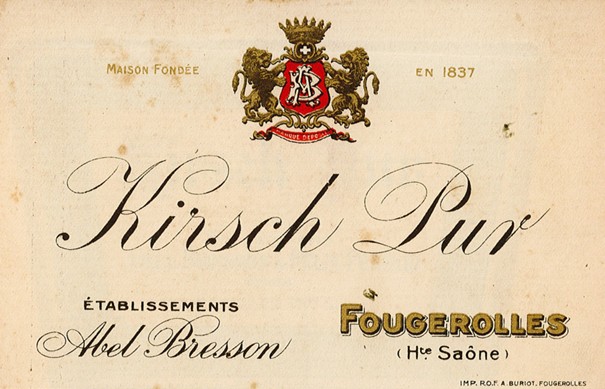 MAISON FONDÉE EN 1837
Kirsch Pur
ÉTABLISSEMENTS
Abel Bresson
FOUGEROLLES
(Hte Saône)
IMP. R.O.F. A. BURIOT, FOUGEROLLES